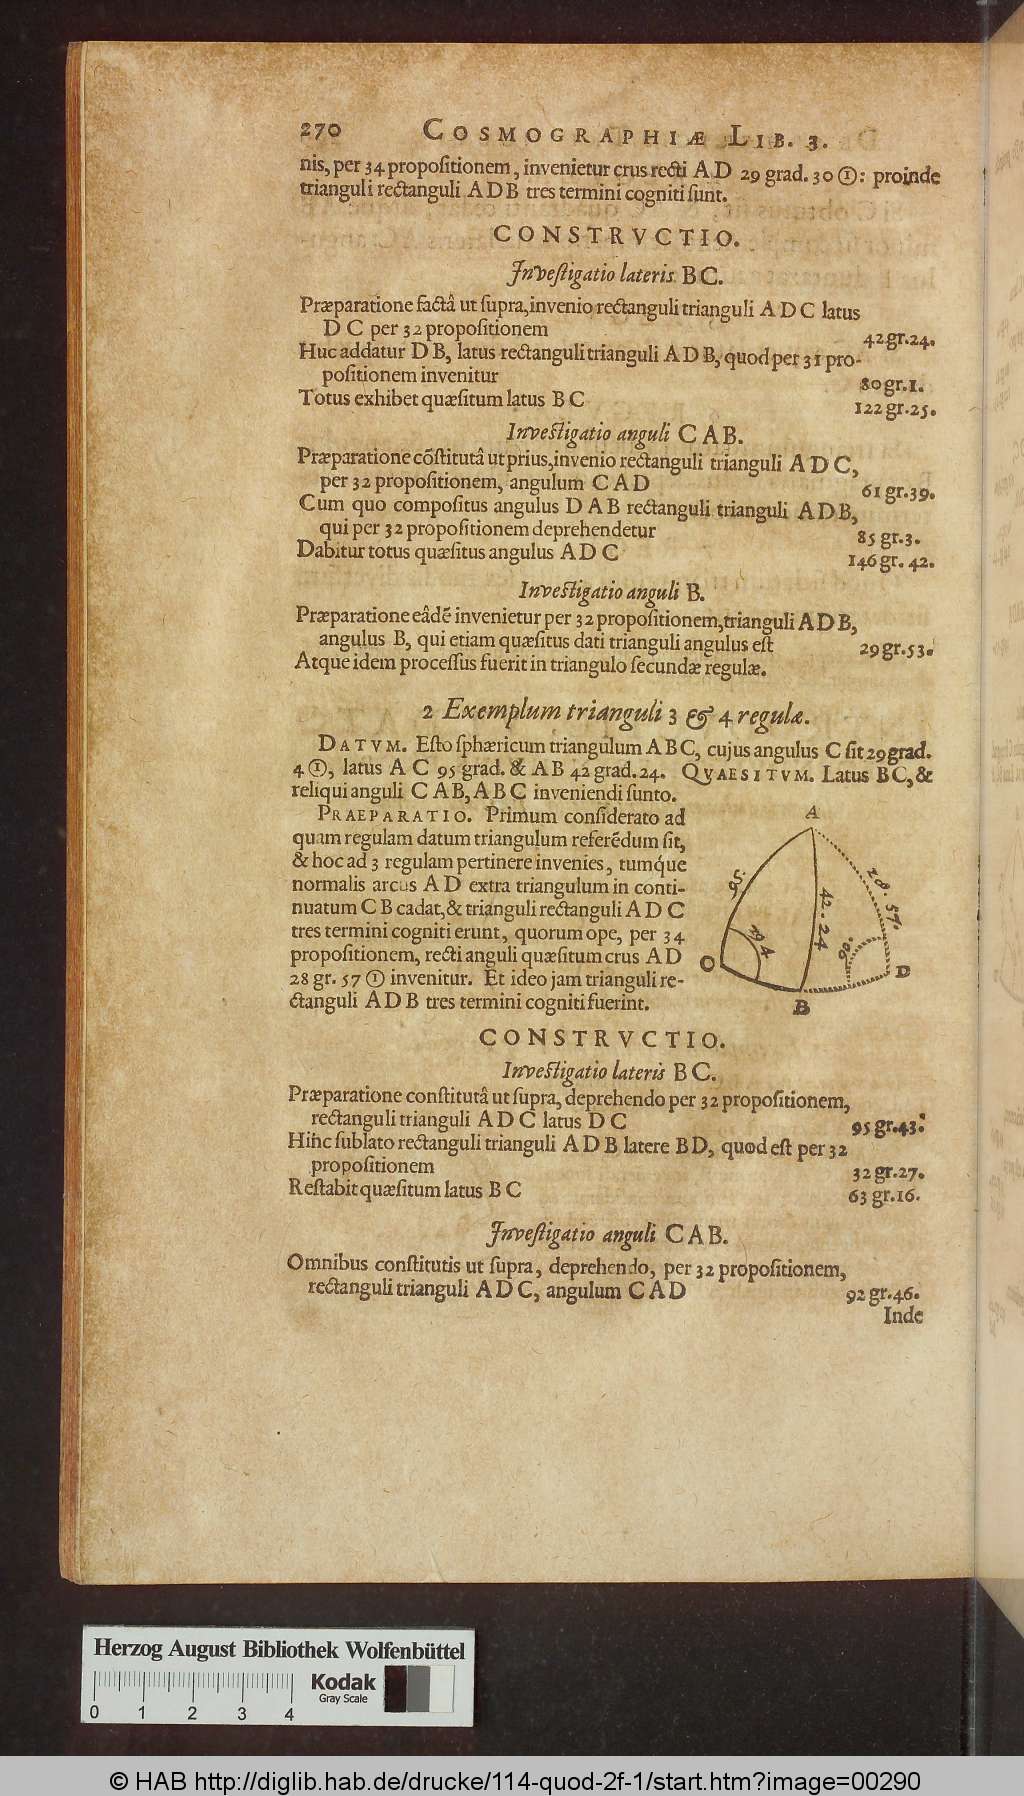 270 COSMOGRAPHIÆ LIB. 3.
nis, per 34 propoſitionem, invenietur crus recti A D 29 grad. 30 ①: proinde
trianguli rectanguli A D B tres termini cogniti ſunt.
CONSTRVCTIO.
Inveſtigatio lateris B C.
Præparatione factâ ut ſupra, invenio rectanguli trianguli A D C latus
D C per 32 propoſitionem 42 gr. 24.
Huc addatur D B, latus rectanguli trianguli A D B, quod per 31 pro-
poſitionem invenitur 80 gr. 1.
Totus exhibet quæſitum latus B C 122 gr. 25.
Inveſtigatio anguli C A B.
Præparatione cõſtitutâ ut prius, invenio rectanguli trianguli A D C,
per 32 propoſitionem, angulum C A D 61 gr. 39.
Cum quo compoſitus angulus D A B rectanguli trianguli A D B,
qui per 32 propoſitionem deprehendetur 85 gr. 3.
Dabitur totus quæſitus angulus A D C 146 gr. 42.
Inveſtigatio anguli B.
Præparatione eâdẽ invenietur per 32 propoſitionem, trianguli A D B,
angulus B, qui etiam quæſitus dati trianguli angulus eſt 29 gr. 53.
Atque idem proceſſus fuerit in triangulo ſecundæ regulæ.
2 Exemplum trianguli 3 & 4 regulæ.
DATVM. Eſto ſphæricum triangulum A B C, cujus angulus C ſit 29 grad.
4 ①, latus A C 95 grad. & A B 42 grad. 24. QVAESITVM. Latus B C, &
reliqui anguli C A B, A B C inveniendi ſunto.
PRAEPARATIO. Primum conſiderato ad
quam regulam datum triangulum referẽdum ſit,
& hoc ad 3 regulam pertinere invenies, tumq́ue
normalis arcus A D extra triangulum in conti-
nuatum C B cadat, & trianguli rectanguli A D C
tres termini cogniti erunt, quorum ope, per 34
propoſitionem, recti anguli quæſitum crus A D
28 gr. 57 ① invenitur. Et ideo jam trianguli re-
ctanguli A D B tres termini cogniti fuerint.
A
95.
42. 24
28. 57.
29 4
90.
O
D
B
CONSTRVCTIO.
Inveſtigatio lateris B C.
Præparatione conſtitutâ ut ſupra, deprehendo per 32 propoſitionem,
rectanguli trianguli A D C latus D C 95 gr. 43.
Hinc ſublato rectanguli trianguli A D B latere B D, quod eſt per 32
propoſitionem 32 gr. 27.
Reſtabit quæſitum latus B C 63 gr. 16.
Inveſtigatio anguli C A B.
Omnibus conſtitutis ut ſupra, deprehendo, per 32 propoſitionem,
rectanguli trianguli A D C, angulum C A D 92 gr. 46.
Inde
Herzog August Bibliothek Wolfenbüttel
Kodak
Gray Scale
0 1 2 3 4
© HAB http://diglib.hab.de/drucke/114-quod-2f-1/start.htm?image=00290